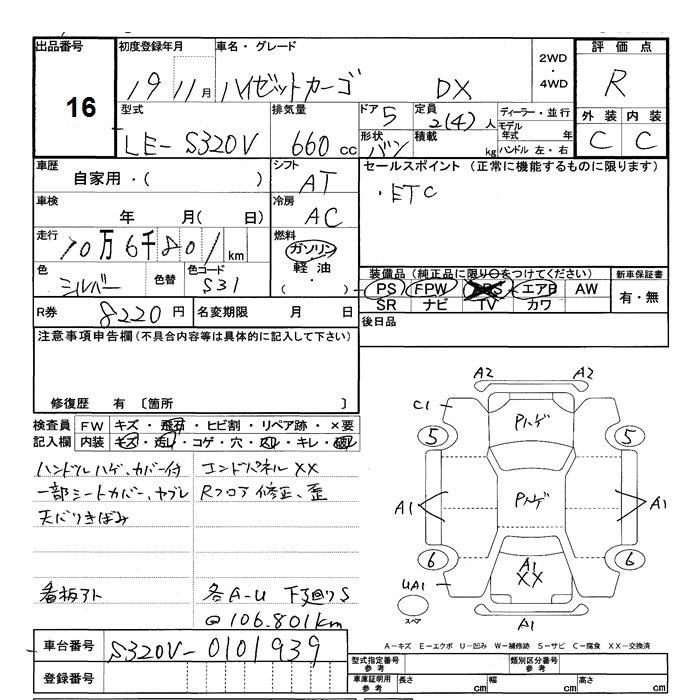 出品番号 初度登録年月 車名・グレード 評価点
16 19 11月 ハイゼットカーゴ DX 2WD・4WD R
型式 排気量 ドア 5 定員 2(4)人 ディーラー・並行 外装 内装
LE-S320V 660cc 形状 バン 積載 kg モデル年式 年 ハンドル 左・右 C C
車歴 シフト セールスポイント (正常に機能するものに限ります)
自家用・( ) AT ・ETC
車検 年 月( 日) 冷房 AC
走行 10万6千801km 燃料 ガソリン 軽油 ・( )
色 シルバー 色替 色コード S31
装備品(純正品に限り○をつけてください) 新車保証書
PS FPW ABS エアB AW 有・無
SR ナビ TV カワ
R券 8220円 名変期限 月 日 後日品
注意事項申告欄(不具合内容等は具体的に記入して下さい)
修復歴 有 〔箇所 〕
検査員記入欄 FW キズ・飛石・ヒビ割・リペア跡・×要
内装 キズ・汚レ・コゲ・穴・スレ・キレ・破レ
ハンドルハゲ、カバー付 エンドパネルXX
一部シートカバー、ヤブレ Rフロア修正、歪
天バリきばみ
看板アト 各A-U 下廻りS
@106.801km
A2 A2
C1 Pハゲ
5 5
A1 Pハゲ A1
6 6
UA1 A1 XX
スペア A1
A-キズ E-エクボ U-凹み W-補修跡 S-サビ C-腐食 XX-交換済
車台番号 S320V-0101939
登録番号
型式指定番号 参考 類別区分番号 参考
車庫証明用 参考 長さ cm 幅 cm 高さ cm